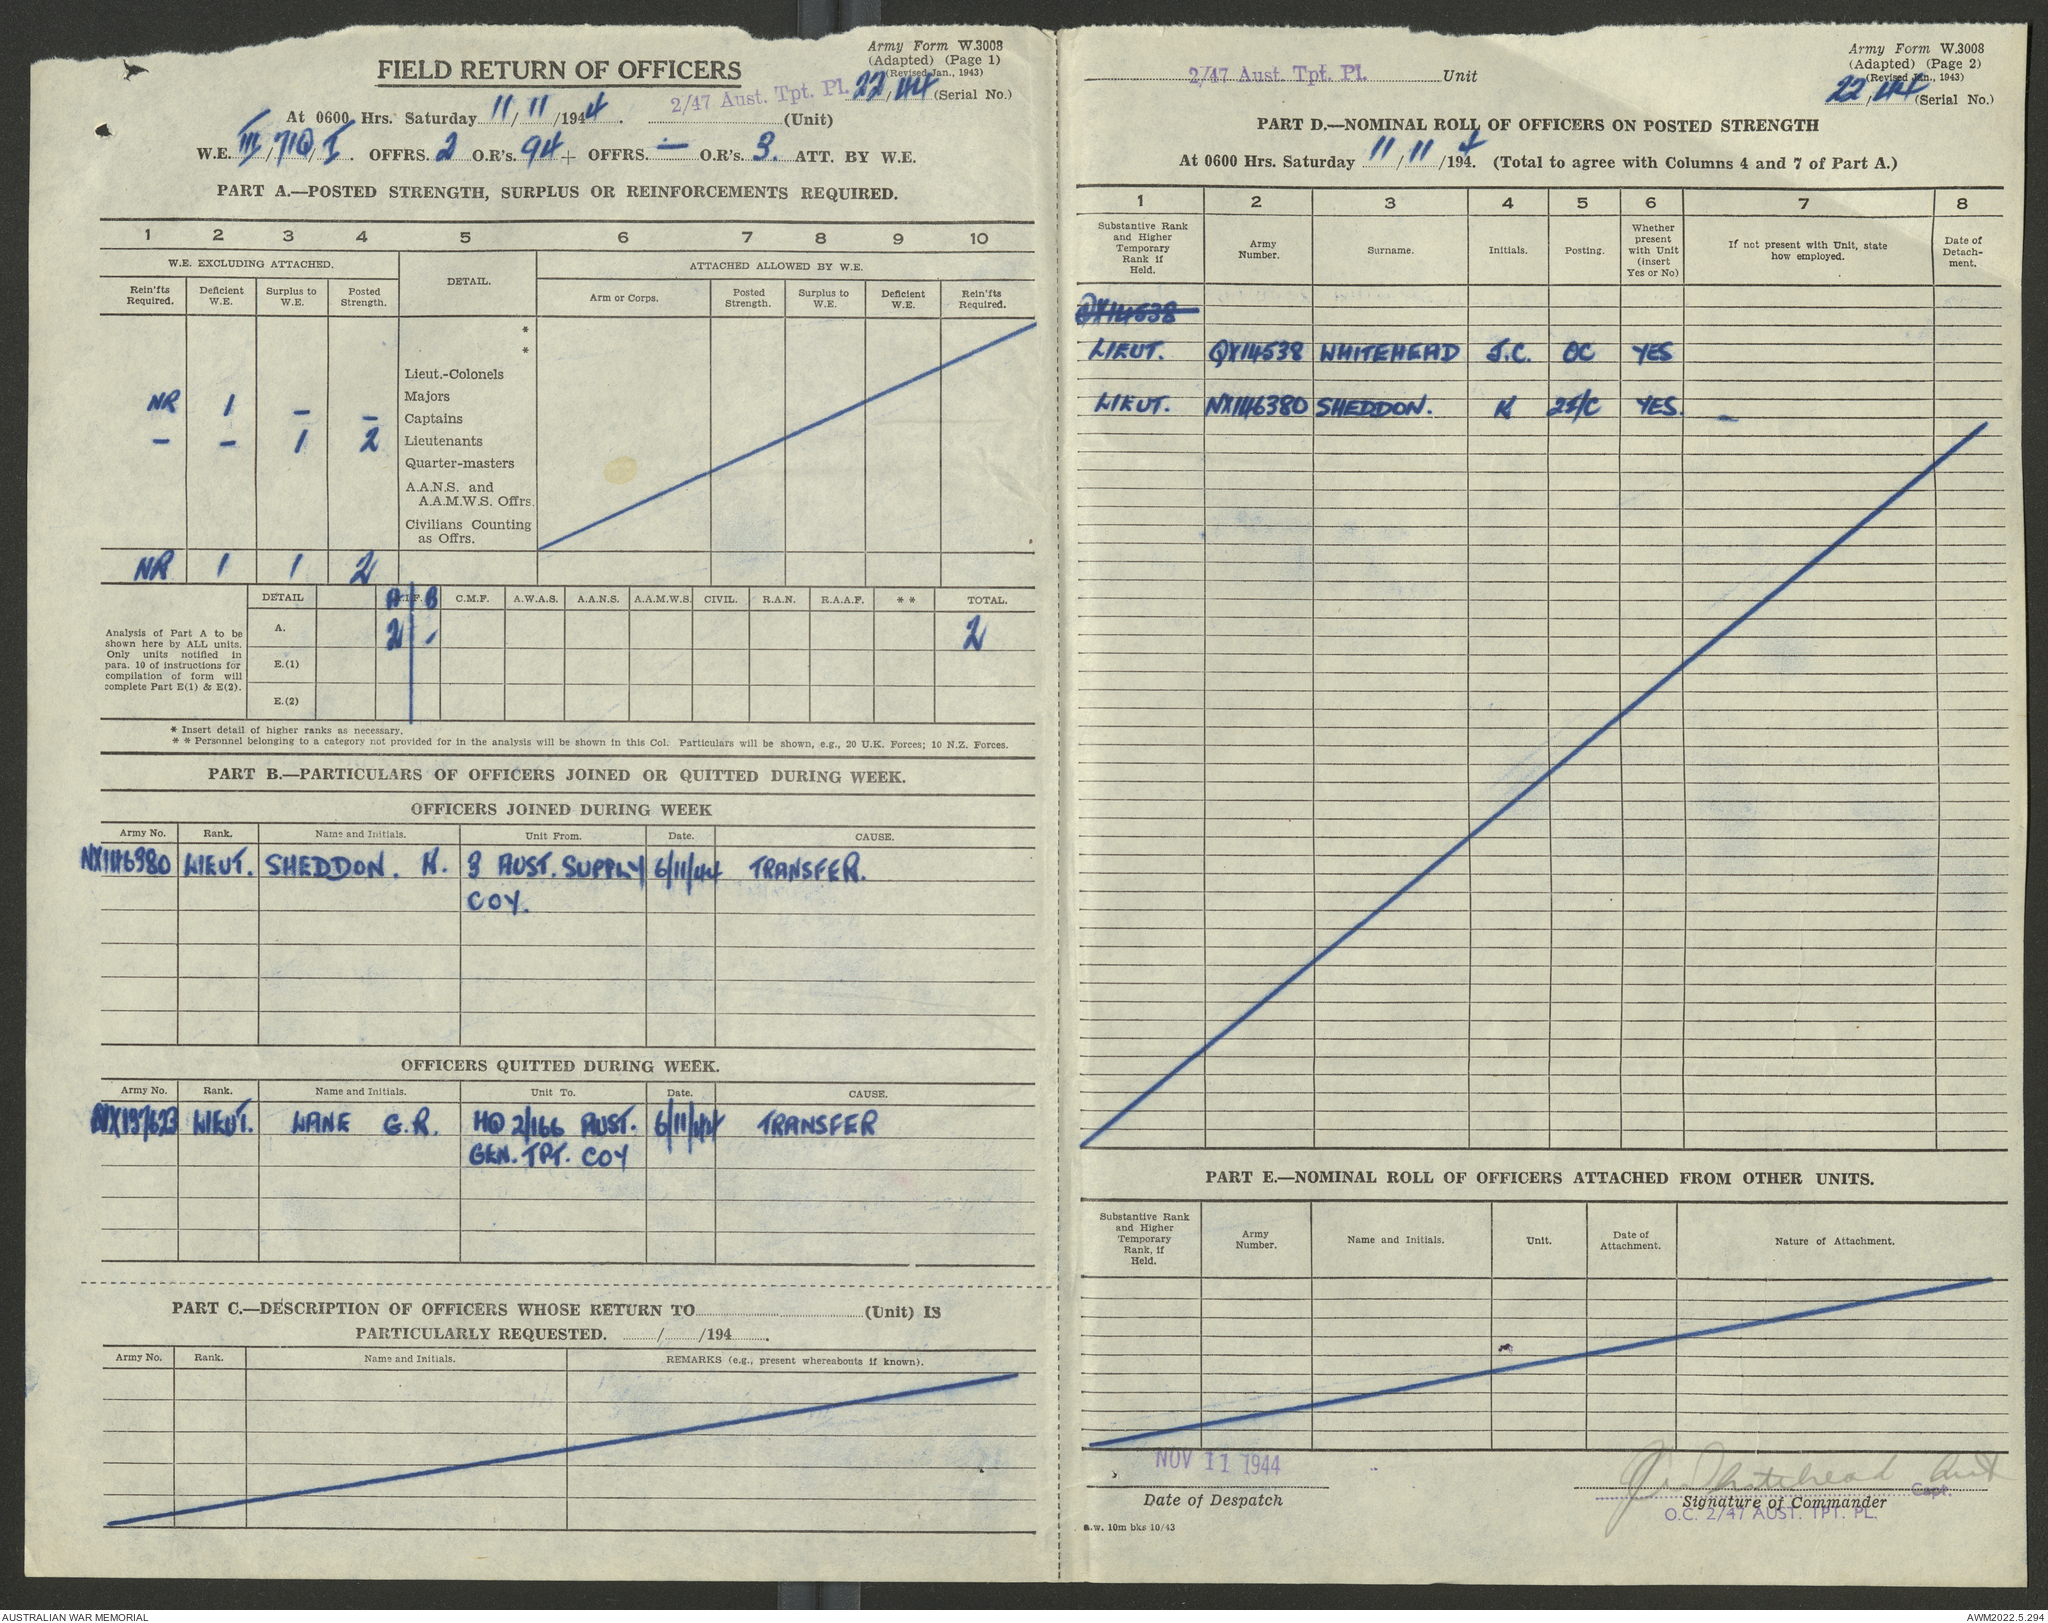 Army Form W.3008
(Adapted) (Page 1)
(Revised Jan., 1943)
FIELD RETURN OF OFFICERS
2/47 Aust. Tpt. Pl. 22/44 (Serial No.)
At 0600 Hrs. Saturday 11/11/1944. (Unit)
W.E. III/71Q/I. OFFRS. 2 O.R's. 94 + OFFRS. — O.R's 3. ATT. BY W.E.
PART A.—POSTED STRENGTH, SURPLUS OR REINFORCEMENTS REQUIRED.
1 2 3 4 5 6 7 8 9 10
W.E. EXCLUDING ATTACHED. DETAIL. ATTACHED ALLOWED BY W.E.
Rein'fts Required. Deficient W.E. Surplus to W.E. Posted Strength. Arm or Corps. Posted Strength. Surplus to W.E. Deficient W.E. Rein'fts Required.
*
*
Lieut.-Colonels
Majors
NR 1 – – Captains
– – 1 2 Lieutenants
Quarter-masters
A.A.N.S. and
A.A.M.W.S. Offrs.
Civilians Counting
as Offrs.
NR 1 1 2
DETAIL A.I.F. A B C.M.F. A.W.A.S. A.A.N.S. A.A.M.W.S. CIVIL. R.A.N. R.A.A.F. * * TOTAL.
Analysis of Part A to be
shown here by ALL units.
Only units notified in
para. 10 of instructions for
compilation of form will
complete Part E(1) & E(2).
A. 2 - 2
E.(1)
E.(2)
* Insert detail of higher ranks as necessary.
* * Personnel belonging to a category not provided for in the analysis will be shown in this Col. Particulars will be shown, e.g., 20 U.K. Forces; 10 N.Z. Forces.
PART B.—PARTICULARS OF OFFICERS JOINED OR QUITTED DURING WEEK.
OFFICERS JOINED DURING WEEK
Army No. Rank. Name and Initials. Unit From. Date. CAUSE.
NX146380 LIEUT. SHEDDON. K. 3 AUST. SUPPLY 6/11/44 TRANSFER.
COY.
OFFICERS QUITTED DURING WEEK.
Army No. Rank. Name and Initials. Unit To. Date. CAUSE.
NX197623 LIEUT. LANE G.R. HQ 2/166 AUST. 6/11/44 TRANSFER
GEN. TPT. COY
PART C.—DESCRIPTION OF OFFICERS WHOSE RETURN TO (Unit) IS
PARTICULARLY REQUESTED. / /194 .
Army No. Rank. Name and Initials. REMARKS (e.g., present whereabouts if known).
Army Form W.3008
(Adapted) (Page 2)
(Revised Jan., 1943)
2/47 Aust. Tpt. Pl. Unit
22/44 (Serial No.)
PART D.—NOMINAL ROLL OF OFFICERS ON POSTED STRENGTH
At 0600 Hrs. Saturday 11/11/1944. (Total to agree with Columns 4 and 7 of Part A.)
1 2 3 4 5 6 7 8
Substantive Rank and Higher Temporary Rank if Held. Army Number. Surname. Initials. Posting. Whether present with Unit (insert Yes or No) If not present with Unit, state how employed. Date of Detach-ment.
QX14538
LIEUT. QX14538 WHITEHEAD J.C. OC YES
LIEUT. NX146380 SHEDDON. K 2I/C YES. –
PART E.—NOMINAL ROLL OF OFFICERS ATTACHED FROM OTHER UNITS.
Substantive Rank and Higher Temporary Rank, if Held. Army Number. Name and Initials. Unit. Date of Attachment. Nature of Attachment.
NOV 11 1944
Date of Despatch
J C Whitehead Lieut
Capt.
Signature of Commander
O.C. 2/47 AUST. TPT. PL.
a.w. 10m bks 10/43
AUSTRALIAN WAR MEMORIAL
AWM2022.5.294